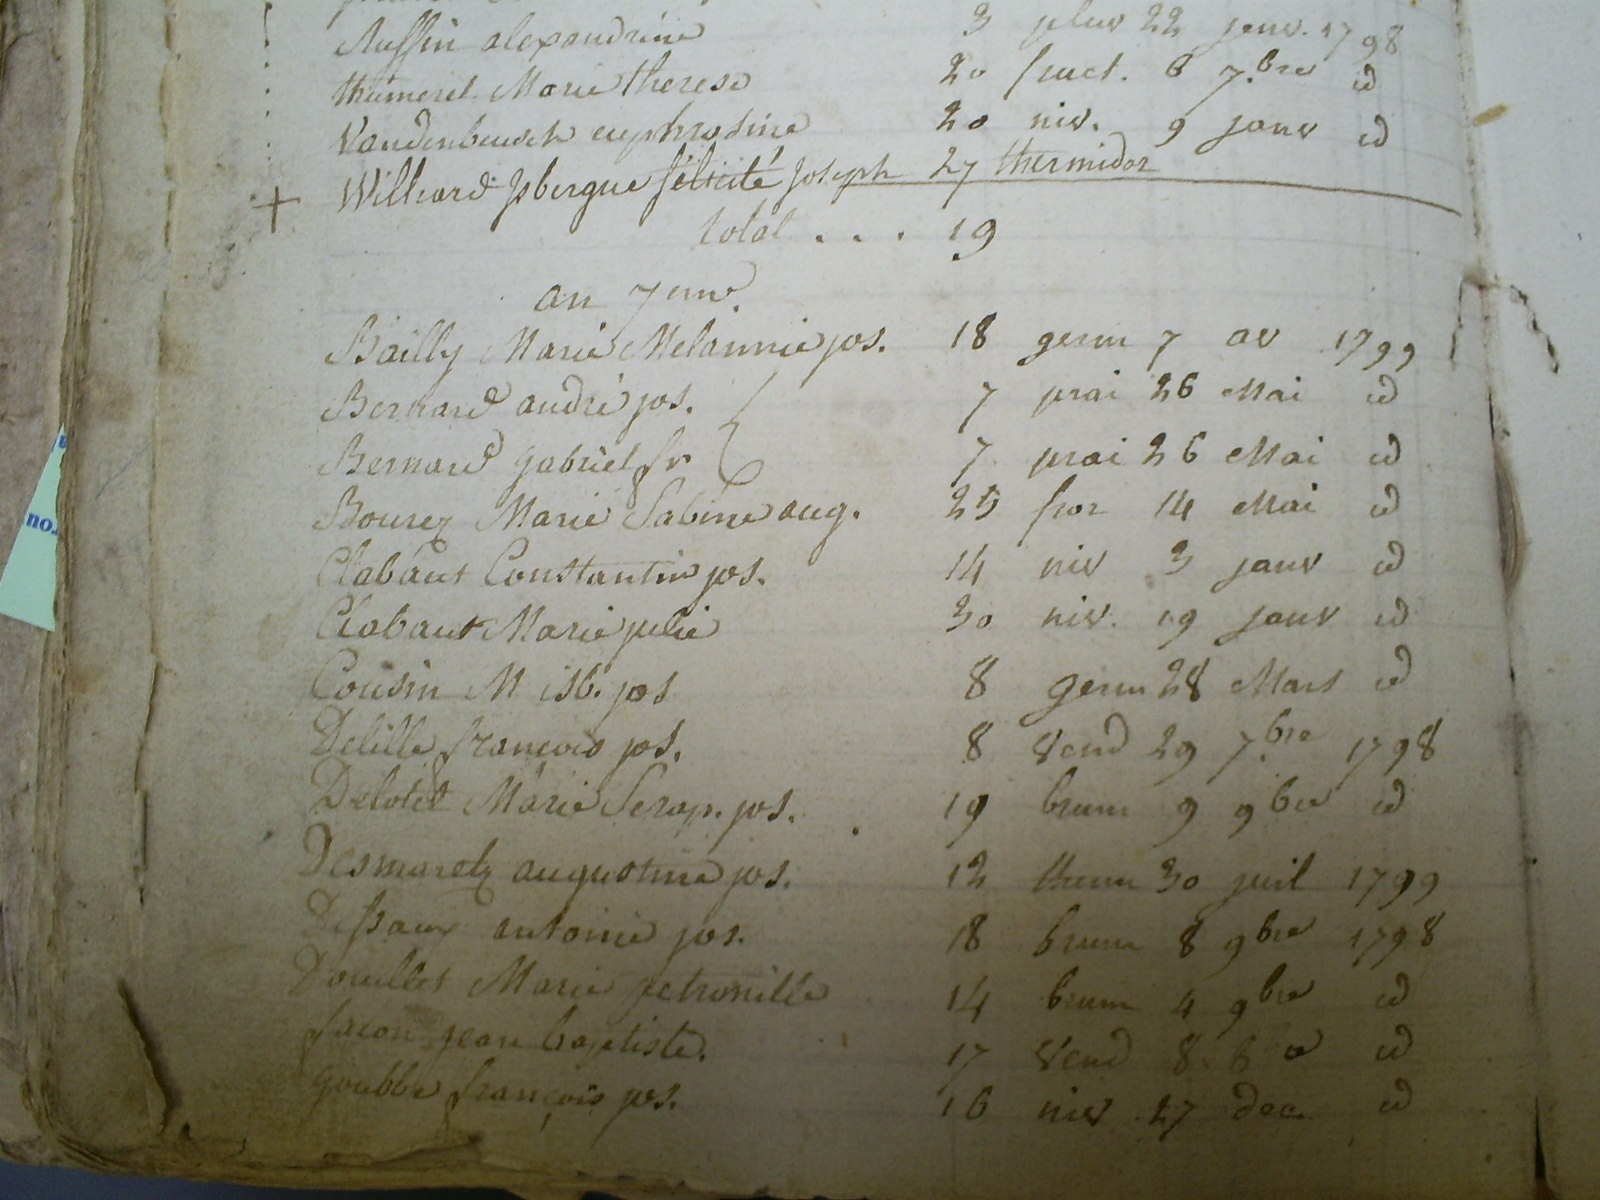 Ruffin alexandrine 3 pluv 22 janv. 1798
thumerel Marie therese 20 fruct. 6 7.bre id
Vandenbusch euphrosine 20 niv. 9 janv id
+ Williard Isbergue félicité joseph 27 thermidor
total . . . 19
an 7eme
Bailly Marie Melannie jos. 18 germ 7 av 1799
Bernard andré jos. 7 prai 26 Mai id
Bernard gabriel fr 7 prai 26 Mai id
no.
Bourez Marie Sabine aug. 25 flor 14 Mai id
Clabaut Constantin jos. 14 niv 3 janv id
Clabaut Marie julie 30 niv. 19 janv id
Cousin M isb. jos 8 germ 28 Mars id
Delille françois jos. 8 vend 29 7.bre 1798
Delotel Marie Serap. jos. 19 brum 9 9bre id
Desmaretz augustine jos. 12 therm 30 juil 1799
Dessaux antoine jos. 18 brum 8 9bre 1798
Douillet Marie petronille 14 brum 4 9bre id
facon jean baptiste. 17 vend 8 8re id
goubbe françois jos. 16 niv 27 dec. id